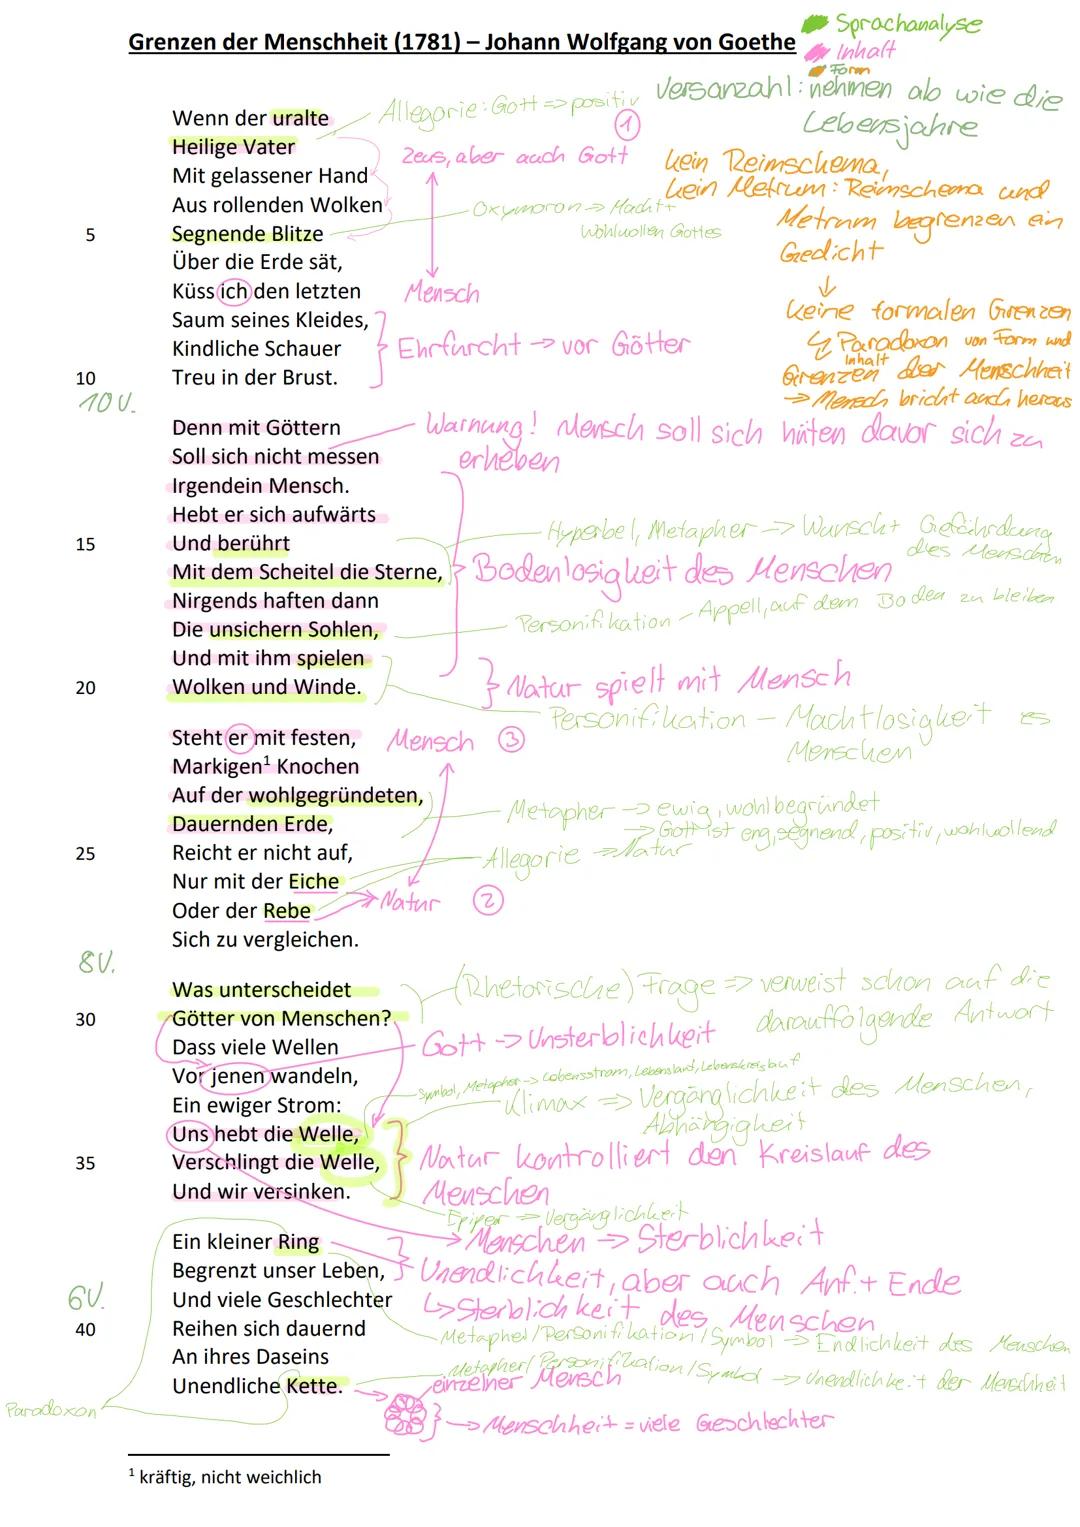 Grenzen der Menschheit (1781) – Johann Wolfgang von Goethe
Sprachanalyse
Inhalt
Form
Versanzahl: nehmen ab wie die
Lebensjahre
Wenn der uralte
Allegorie: Gott => positiv
1
Heilige Vater
Zeus, aber auch Gott
kein Reimschema,
Mit gelassener Hand
kein Metrum: Reimschema und
Aus rollenden Wolken
Oxymoron -> Macht +
Metrum begrenzen ein
5
Segnende Blitze
Wohlwollen Gottes
Gedicht
Über die Erde sät,
Küss ich den letzten
Mensch
keine formalen Grenzen
Saum seines Kleides,
Ehrfurcht -> vor Götter
Paradoxon von Form und
Inhalt
Kindliche Schauer
Grenzen der Menschheit
10
Treu in der Brust.
-> Mensch bricht auch heraus
10 V.
Denn mit Göttern
Warnung! Mensch soll sich hüten davor sich zu
Soll sich nicht messen
erheben
Irgendein Mensch.
Hebt er sich aufwärts
Hyperbel, Metapher -> Wunsch + Gefährdung
des Menschen
15
Und berührt
Mit dem Scheitel die Sterne,
Bodenlosigkeit des Menschen
Nirgends haften dann
Die unsichern Sohlen,
Personifikation - Appell, auf dem Boden zu bleiben
Und mit ihm spielen
Natur spielt mit Mensch
20
Wolken und Winde.
Personifikation – Machtlosigkeit es
Menschen
Steht er mit festen,
Mensch 3
Markigen¹ Knochen
Auf der wohlgegründeten,
Metapher -> ewig, wohlbegründet
Dauernden Erde,
-> Gott ist eng, segnend, positiv, wohlwollend
25
Reicht er nicht auf,
Allegorie -> Natur
Nur mit der Eiche
Natur 2
Oder der Rebe
Sich zu vergleichen.
8 V.
Was unterscheidet
(Rhetorische) Frage => verweist schon auf die
darauffolgende Antwort
30
Götter von Menschen?
Gott -> Unsterblichkeit
Dass viele Wellen
Vor jenen wandeln,
Symbol, Metapher -> Lebensstrom, Lebenslauf, Lebenskreislauf
Ein ewiger Strom:
Klimax => Vergänglichkeit des Menschen,
Abhängigkeit
Uns hebt die Welle,
35
Verschlingt die Welle,
Natur kontrolliert den Kreislauf des
Und wir versinken.
Menschen
Epipher -> Vergänglichkeit
Menschen -> Sterblichkeit
Ein kleiner Ring
Begrenzt unser Leben,
Unendlichkeit, aber auch Anf. + Ende
6 V.
Und viele Geschlechter
Sterblichkeit des Menschen
40
Reihen sich dauernd
Metapher/Personifikation/Symbol -> Endlichkeit des Menschen
An ihres Daseins
Metapher/Personifikation/Symbol -> Unendlichkeit der Menschheit
Unendliche Kette.
einzelner Mensch
Paradoxon
-> Menschheit = viele Geschlechter
¹ kräftig, nicht weichlich